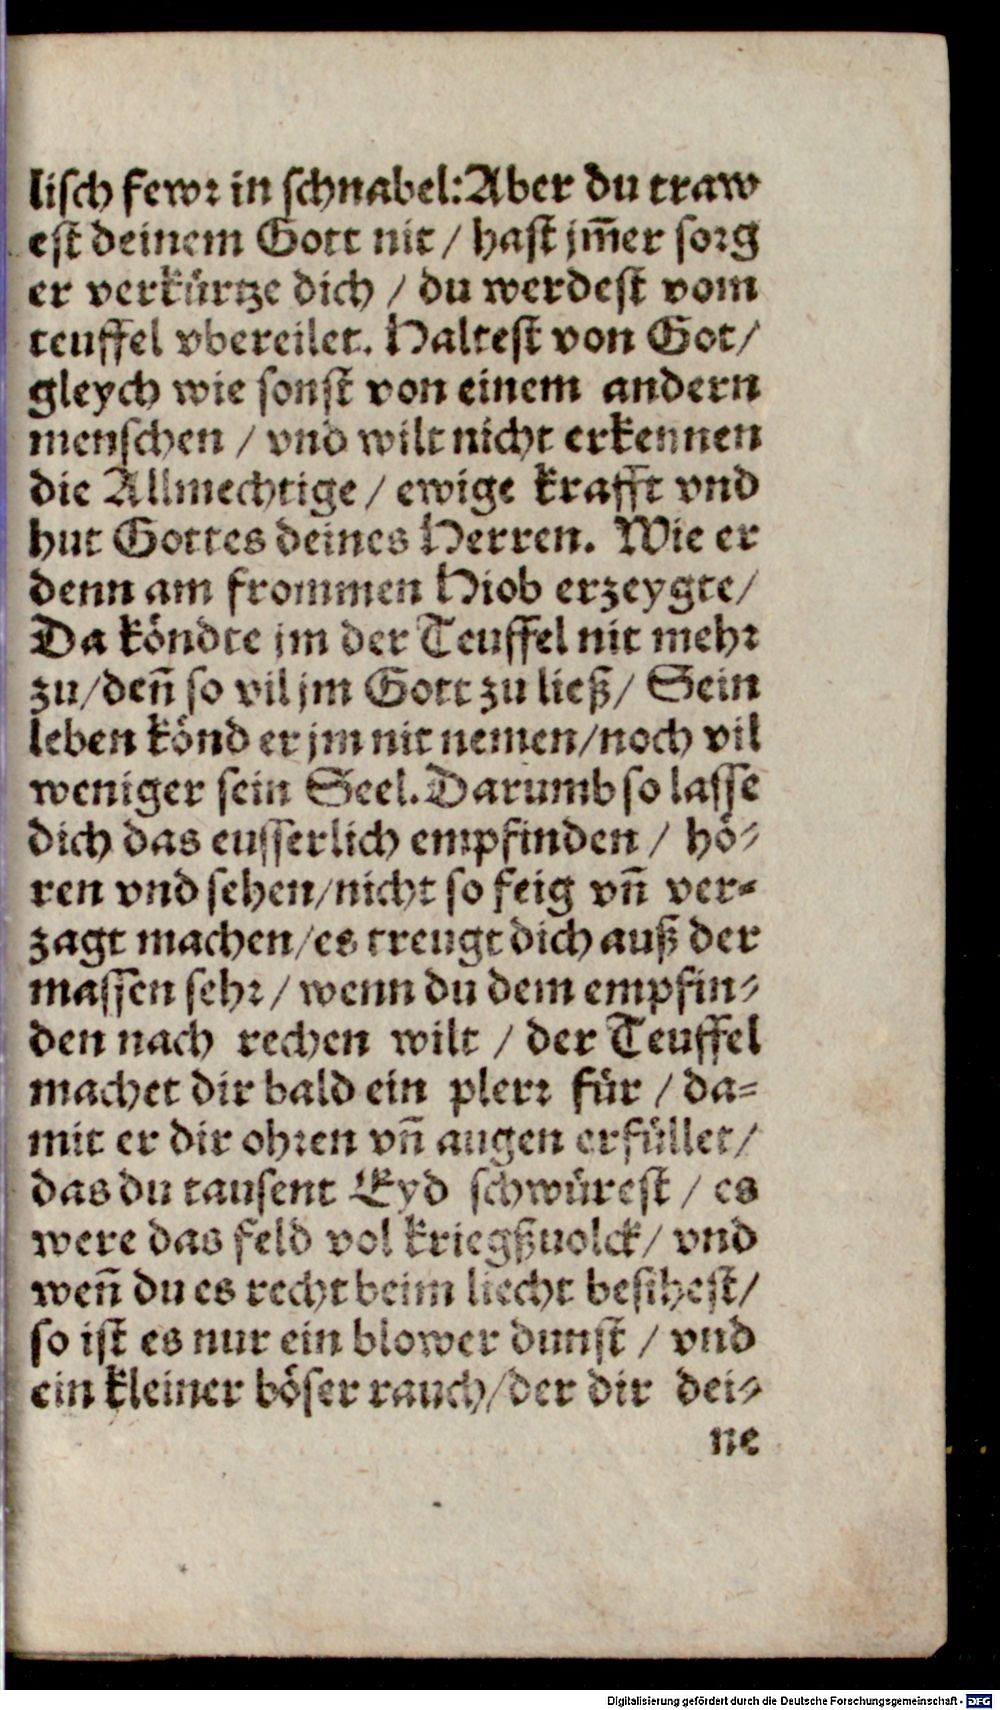 lisch fewr in schnabel: Aber du traw
est deinem Gott nit / hast jm̃er sorg
er verkürtze dich / du werdest vom
teuffel vbereilet. Haltest von Got/
gleych wie sonst von einem andern
menschen / vnd wilt nicht erkennen
die Allmechtige / ewige krafft vnd
hut Gottes deines Herren. Wie er
denn am frommen Hiob erzeygte/
Da köndte jm der Teuffel nit mehr
zu/deñ so vil jm Gott zu ließ/ Sein
leben könd er jm nit nemen/noch vil
weniger sein Seel. Darumb so lasse
dich das eusserlich empfinden / hö-
ren vnd sehen/nicht so feig vñ ver-
zagt machen/es treugt dich auß der
massen sehr / wenn du dem empfin-
den nach rechen wilt / der Teuffel
machet dir bald ein plerr für / da-
mit er dir ohren vñ augen erfüllet/
das du tausent Eyd schwürest / es
were das feld vol kriegßuolck/ vnd
weñ du es recht beim liecht besihest/
so ist es nur ein blower dunst / vnd
ein kleiner böser rauch/der dir dei-
ne
Digitalisierung gefördert durch die Deutsche Forschungsgemeinschaft - DFG